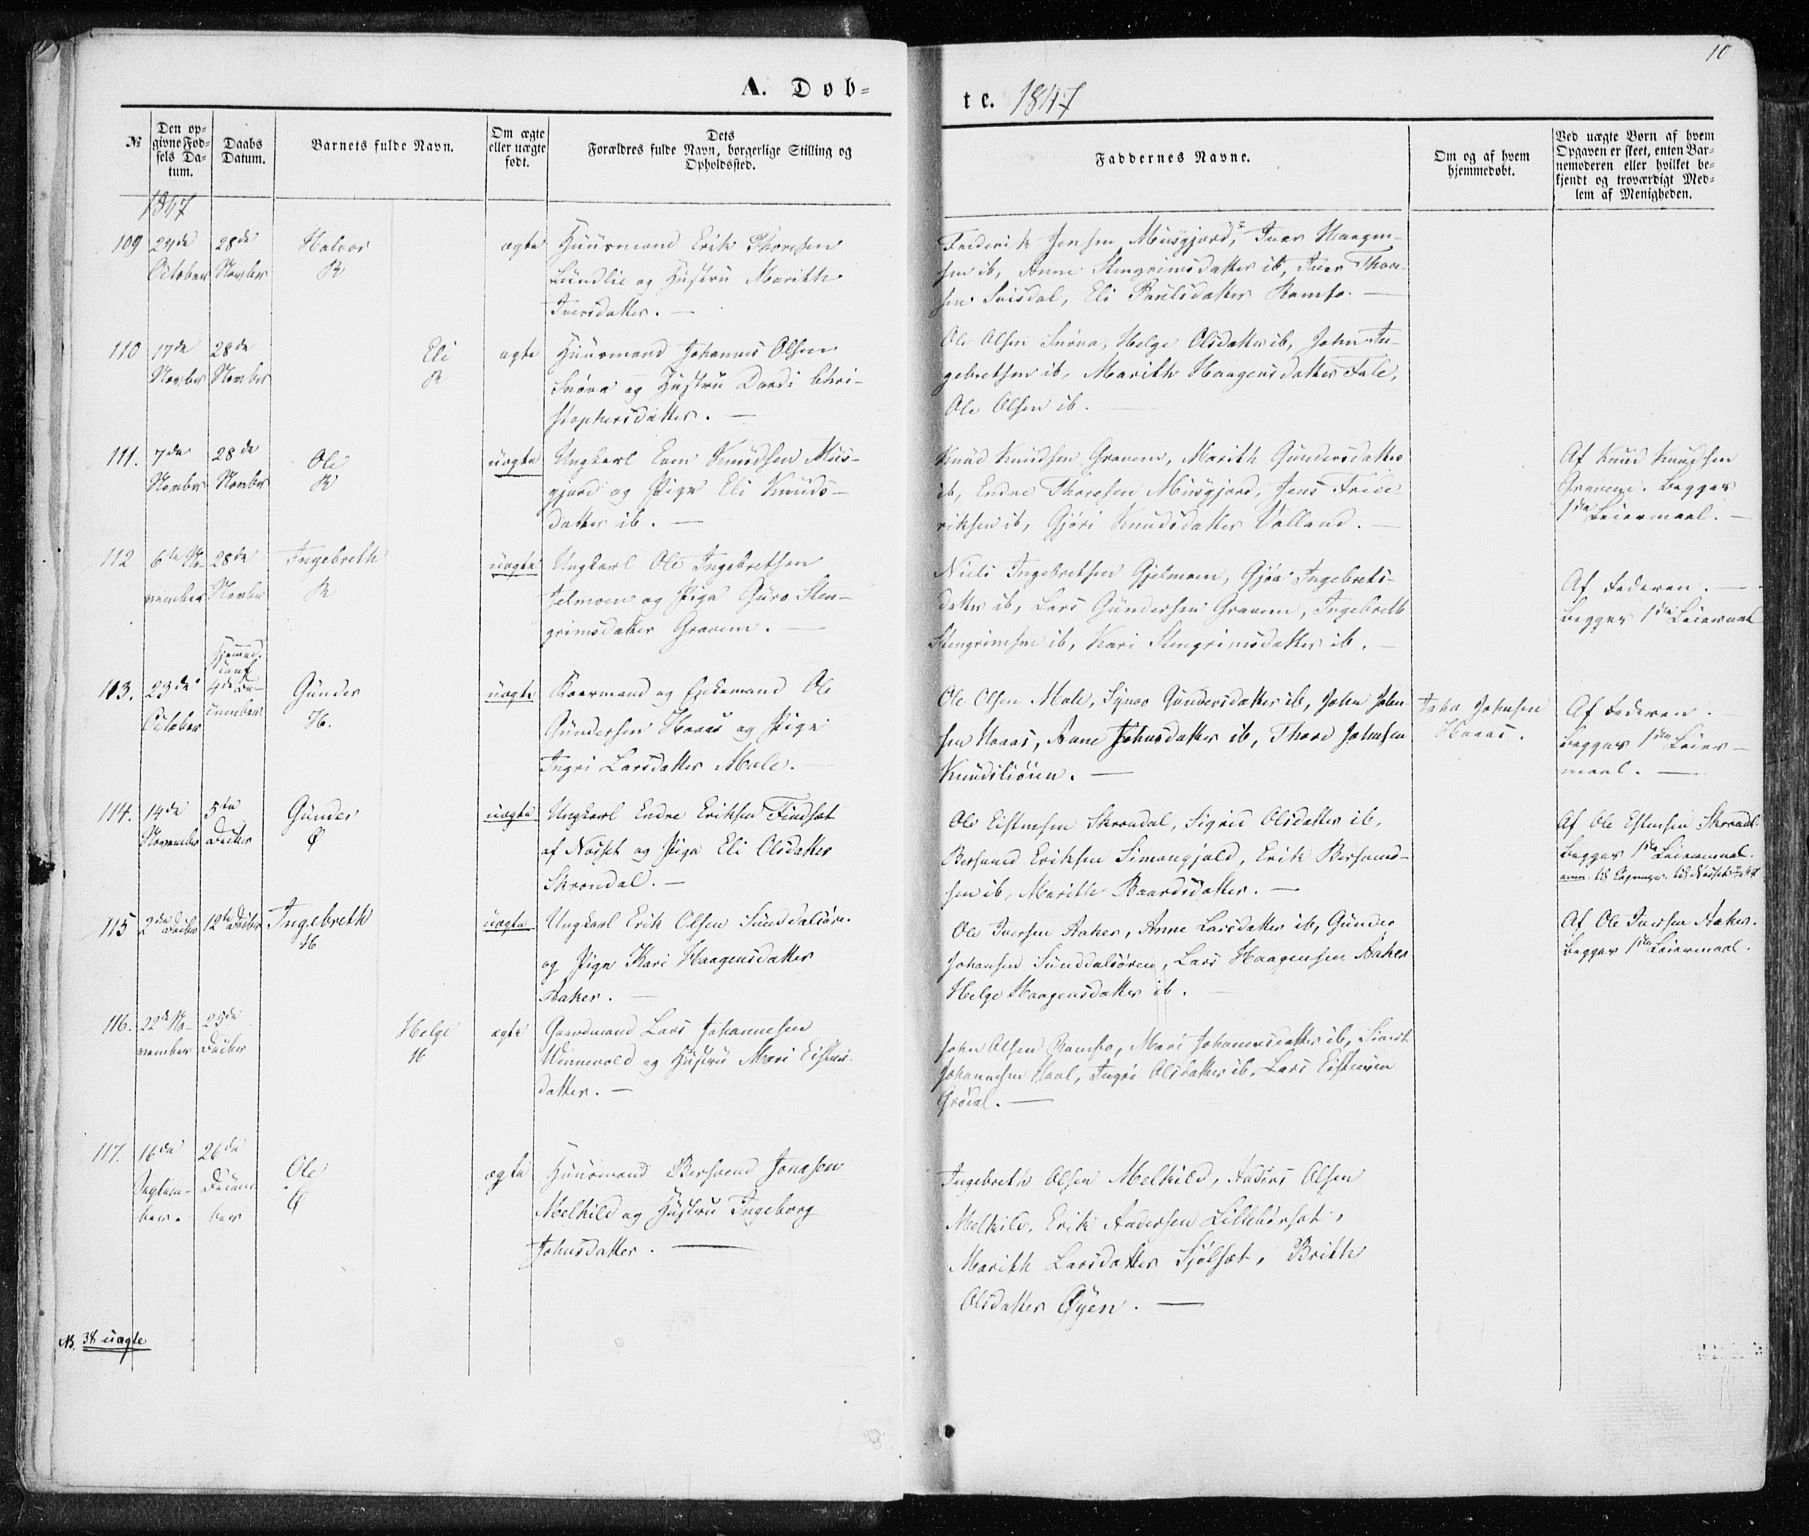 10
A. Døb-
te. 1847
№
Den opgivne Fødsels Datum.
Daabs Datum.
Barnets fulde Navn.
Om ægte eller uægte født.
Dets Forældres fulde Navn, borgerlige Stilling og Opholdssted.
Faddernes Navne.
Om og af hvem hjemmedøbt.
Ved uægte Børn af hvem Opgaven er skeet, enten Barnemoderen eller hvilket bekjendt og troværdigt Medlem af Menigheden.
1847
109 24de 28de Halvor ægte Huusmand Erik Thoresen
October Novbr R Lundlie og Hustru Marith
Iversdatter. —
Frederik Jensen Musgjerd, Iver Haagen-
sen ib, Anne Stengrimsdatter ib, Iver Thore-
sen Svisdal, Eli Paulsdatter Romfo. —
110 17de 28de Eli ægte Huusmand Johannes Olsen
Novbr Novbr R Snøva og Hustru Dordi Chri-
stophersdatter. —
Ole Olsen Snøva, Helge Olsdatter ib, John In-
gebretsen ib, Marith Haagensdatter Fale,
Ole Olsen ib. —
111. 7de 28de Ole uægte Ungkarl Even Knudsen Mus-
Novbr Novbr R gjerd og Pige Eli Knuds-
datter ib. —
Knud Knudsen Gravem, Marith Gundersdatter
ib, Endre Thoresen Musgjerd, Jens Frede-
riksen ib, Gjøri Knudsdatter Valland. —
Af Knud Knudsen
Gravem. Begges
1ste Leiermaal. —
112 6te No- 28de Ingebreth uægte Ungkarl Ole Ingebretsen
vember Novbr R Jelmoen og Pige Guro Sten-
grimsdatter Gravem. —
Niels Ingebretsen Gjelmoen, Gjøa Ingebrets-
datter ib, Lars Gundersen Gravem, Ingebreth
Stengrimsen ib, Kari Stengrimsdatter ib. —
Af Faderen. —
Begges 1ste Leiermaal
113. 23de Hjemmed. 4de De- Gunder uægte Kaarmand og Enkemand Ole
October cember H. Gundersen Haaas og Pige
Ingri Larsdatter Mæle. —
Ole Olsen Mæle, Synøv Gundersdatter ib, John John-
sen Haaas, Anne Johnsdatter ib, Thore Johnsen
Knudsliøren. —
John Johnsen
Haaas.
Af Faderen. —
Begges 1ste Leier-
maal. —
114. 14de 5te Gunder uægte Ungkarl Endre Eriksen Findset
November Decbr Ø af Nesset og Pige Eli Olsdatter
Skrondal. —
Ole Eistensen Skrondal, Sigrid Olsdatter ib,
Bersvend Eriksen Simengjald, Erik Bersvend-
sen ib, Marith Baardsdatter. —
Af Ole Estensen Skrondal.
Begges 1ste Leiermaal.
115 2den Decbr 12te Decbr Ingebreth uægte Ungkarl Erik Olsen Sunddalsøre
H og Pige Kari Haagensdatter
Aaker. —
Ole Iversen Aaker, Anne Larsdatter ib, Gunder
Johansen Sunddalsøren, Lars Haagensen Aaker
Helge Haagensdatter ib. —
Af Ole Iversen Aaker.
Begges 1ste Leiermaal.
116. 22de No- 25de Helge ægte Gaardmand Lars Johannesen
vember Decbr H Winnevold og Hustru Mari Eistens-
datter. —
John Olsen Romfo, Mari Johannesdatter ib, Sivert
Johannesen Hoel, Ingri Olsdatter ib, Lars Eistensen
Grødal. —
117. 16de 26de Ole ægte Huusmand Bersvend Jonasen
Septem- Decem- Ø Melkild og Hustru Ingeborg
ber. ber Johnsdatter. —
Ingebreth Olsen Melkild, Anders Olsen
Melkild, Erik Andersen Lillebørset,
Marith Larsdatter Sjølset, Brith
Olsdatter Øyen. —
NB. 38 uægte